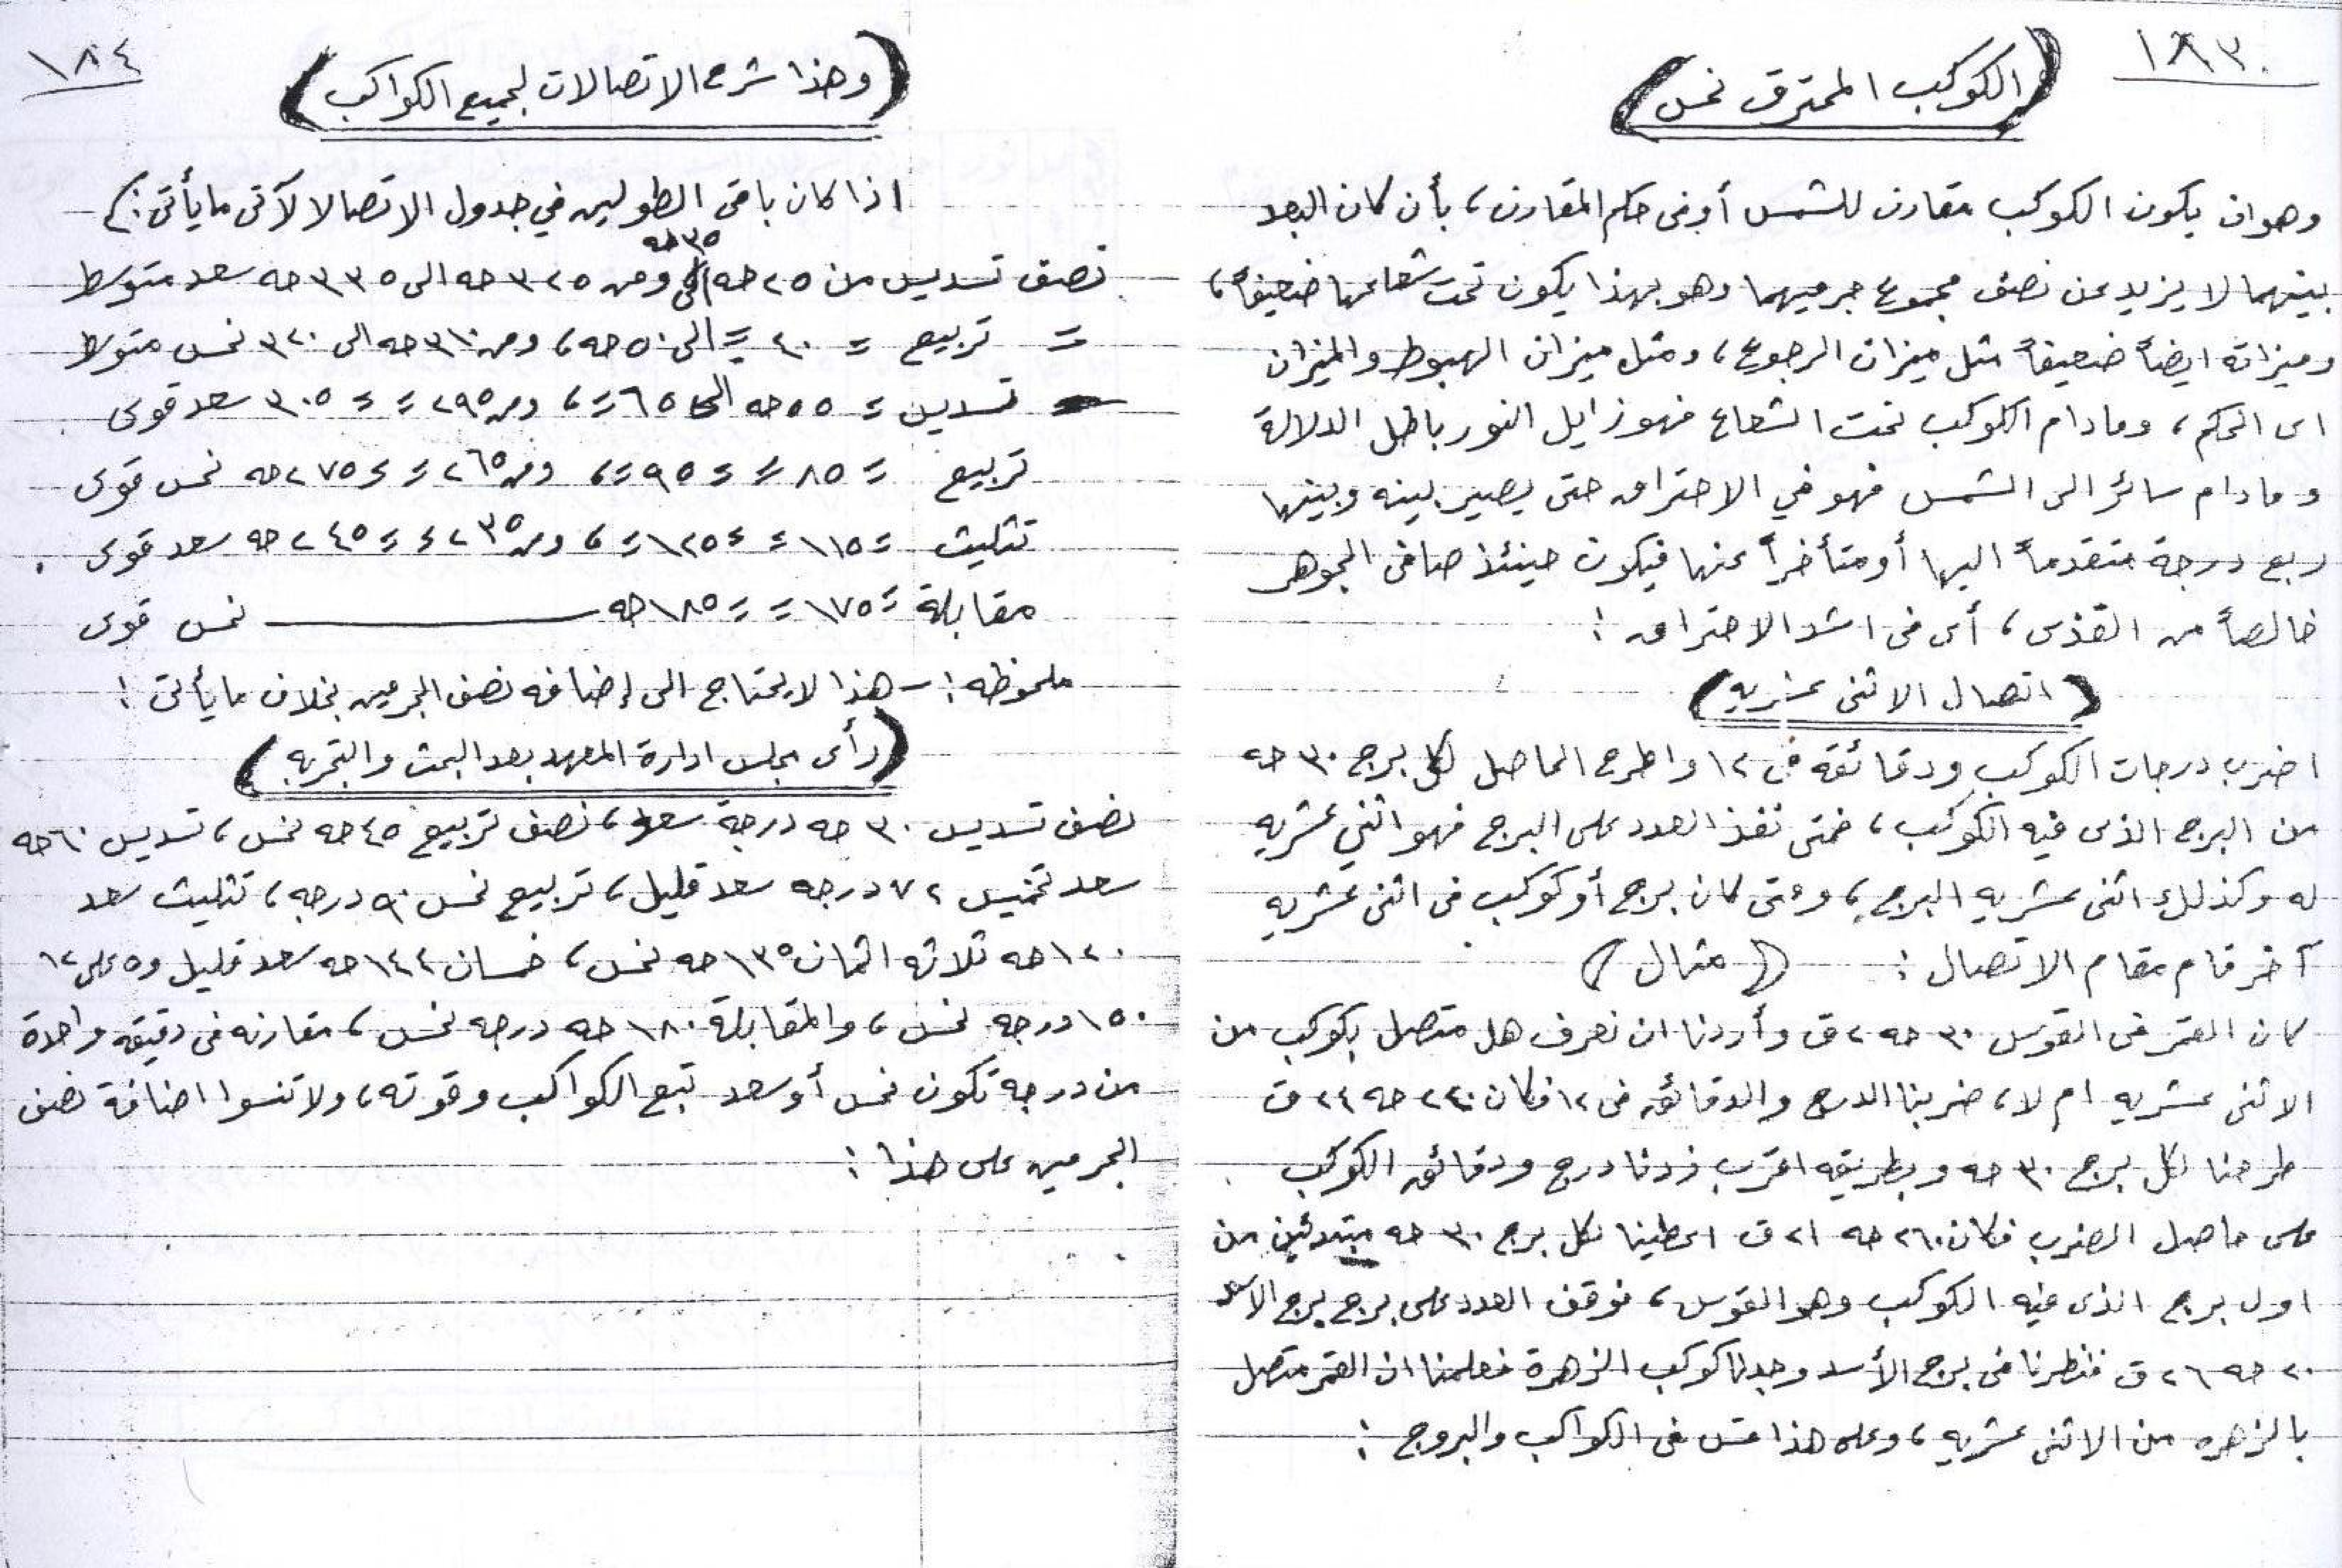 ١٨٣
(الكوكب المحترق نحس)
وهو ان يكون الكوكب مقارن للشمس أو فى حكم المقارن، بأن كان البعد
بينهما لا يزيد عن نصف مجموع جرميهما وهو بهذا يكون تحت شعاعها ضعيفاً،
وميزانه ايضاً ضعيفاً مثل ميزان الرجوع، ومثل ميزان الهبوط والميزان
اى الحكم، ومادام الكوكب تحت الشعاع فهو زايل النور باطل الدلالة
ومادام سائراً الى الشمس فهو في الاحتراق حتى يصير بينه وبينها
ربع درجة متقدماً اليها أو متأخراً عنها فيكون حينئذ صافى الجوهر
خالصاً من القذى، أى فى اشد الاحتراق :
(اتصال الاثنى عشريه)
اضرب درجات الكوكب ودقائقه فى ١٢ واطرح الحاصل لكل برج ٣٠ حه
من البرج الذى فيه الكوكب، فمتى نفذ العدد على البرج فهو اثني عشريه
له وكذلك اثنى عشريه البرج، ومتى كان برج أو كوكب فى اثنى عشريه
آخر قام مقام الاتصال : (مثال)
كان القمر فى القوس ٣٠ حه ٢ ق وأردنا ان نعرف هل متصل بكوكب من
الاثنى عشريه ام لا، ضربنا الدرج والدقائق فى ١٢ فكان ٢٤٠ حه ٢٤ ق
طرحنا لكل برج ٣٠ حه وبطريقه اقرب زدنا درج ودقائق الكوكب
على حاصل الضرب فكان ٢٦٠ حه ٢١ ق اعطينا لكل برج ٣٠ حه مبتدئين من
اول برج الذى فيه الكوكب وهو القوس، فوقف العدد على برج برج الاسد
٢٠ حه ٢٦ ق فنظرنا فى برج الأسد وجدنا كوكب الزهرة فعلمنا ان القمر متصل
بالزهره من الاثنى عشريه، وعلى هذا قس فى الكواكب والبروج :
١٨٤
(وهذا شرح الاتصالات لجميع الكواكب)
اذا كان باقى الطولين في جدول الاتصالا لآتى ما يأتى :
نصف تسديس من ٢٥ حه الى ٣٥ حه ومن ٣٢٥ حه الى ٣٣٥ حه سعد متوسط
= تربيع = ٤٠ = الى ٥٠ حه، ومن ٣١٠ حه الى ٣٢٠ نحس متوسط
تسديس = ٥٥ حه الى ٦٥ =، ومن ٢٩٥ = = ٣٠٥ سعد قوى
تربيع = ٨٥ = = ٩٥ =، ومن ٢٦٥ = = ٢٧٥ حه نحس قوى
تثليث = ١١٥ = = ١٢٥ =، ومن ٢٣٥ = = ٢٤٥ حه سعد قوى .
مقابلة = ١٧٥ = = ١٨٥ حه ــــــ نحس قوى
ملحوظه :- هذا لا يحتاج الى إضافه نصف الجرمين بخلاف ما يأتى :
(رأى مجلس ادارة المعهد بعد البحث والتجربه)
نصف تسديس ٣٠ حه درجة سعد، نصف تربيع ٤٥ حه نحس، تسديس ٦٠ حه
سعد تخميس ٧٢ درجه سعد قليل، تربيع نحس ٩٠ درجه، تثليث سعد
١٢٠ حه ثلاثه اثمان ١٣٥ حه نحس، خمسان ١٤٤ حه سعد قليل و٥ على ١٢
١٥٠ درجه نحس، والمقابلة ١٨٠ حه درجه نحس، مقارنه فى دقيقه واحدة
من درجه تكون نحس أو سعد تبع الكواكب وقوته، ولا تنسوا اضافة نصف
الجرمين على هذا :